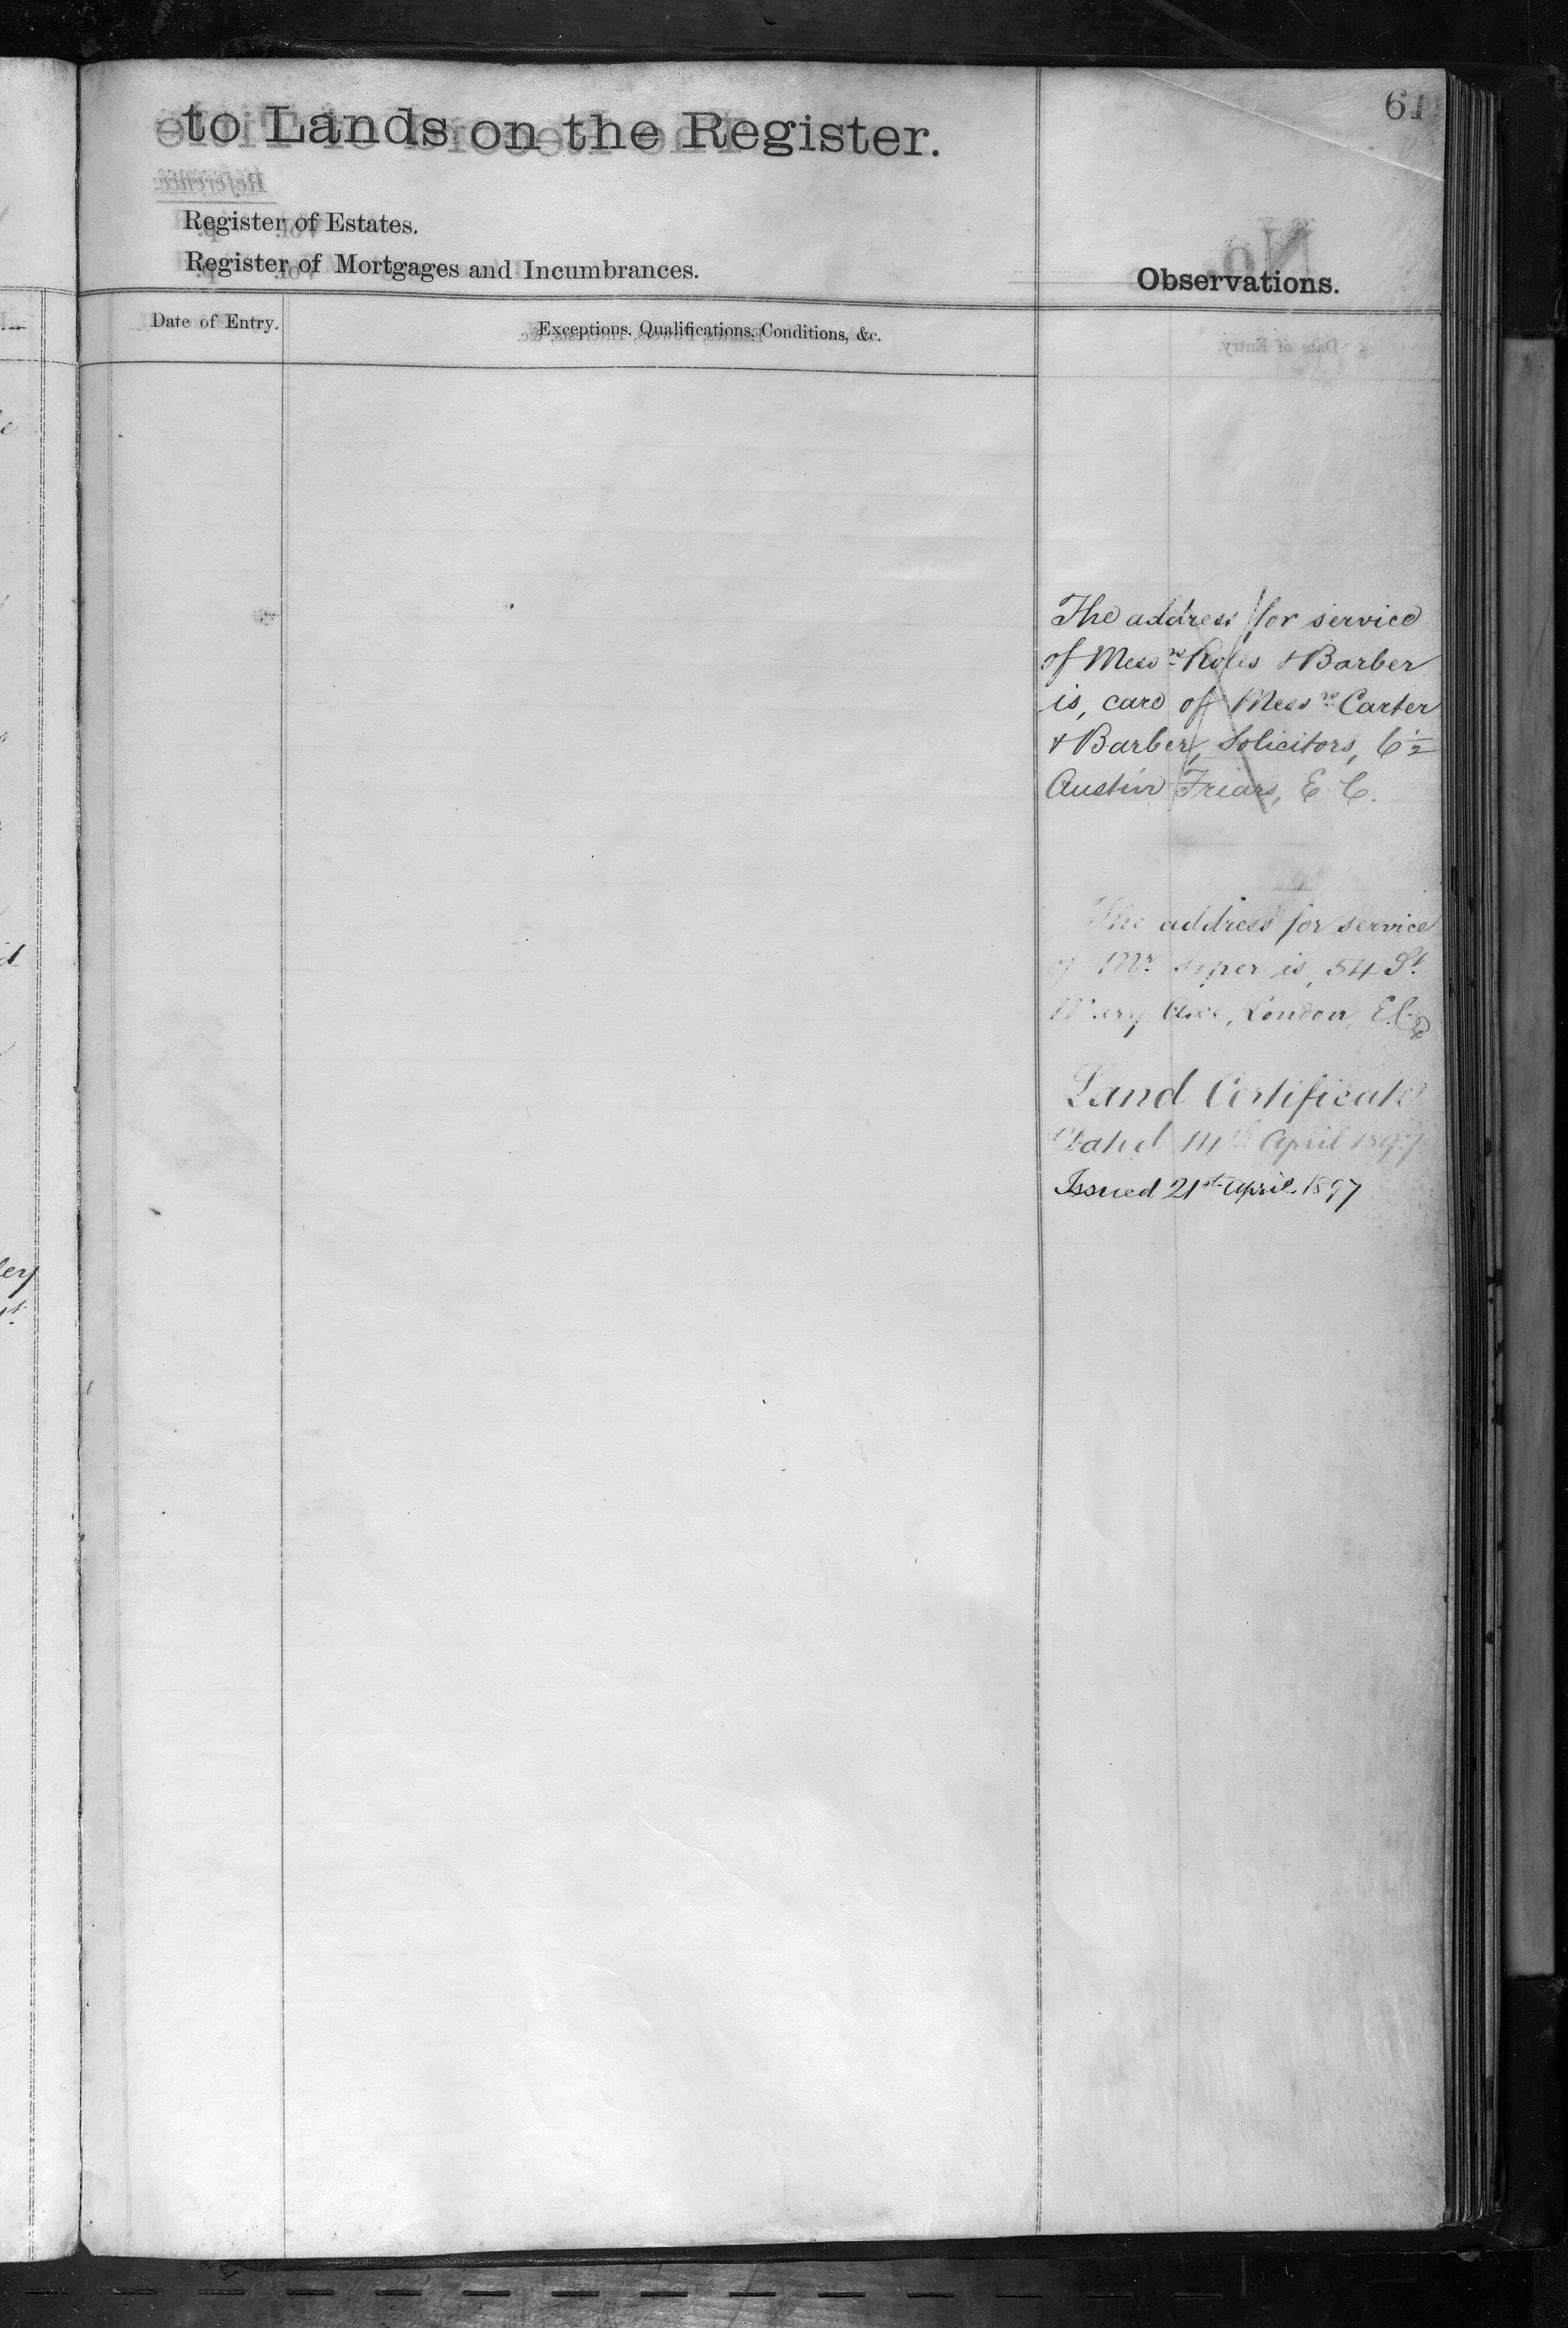 61
to Lands on the Register.
Register of Estates.
Register of Mortgages and Incumbrances.
Observations.
Date of Entry.
Exceptions, Qualifications, Conditions, &c.
The address for service
of Mess.rs & Barber
is, care of Mess.rs Carter
& Barber, Solicitors, 6½
Austin Friars, E.C.
The address for service
of Mr. is, 54 St.
Mary Axe, London, E.C.
Land Certificate
Dated 14th April 1897
Issued 21st April 1897